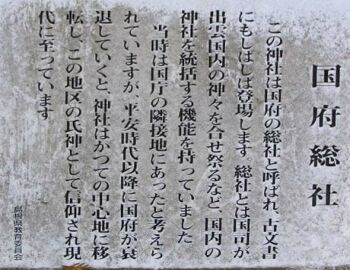 国府総社
この神社は国府の総社と呼ばれ、古文書
にもしばしば登場します 総社とは国司が
出雲国内の神々を合せ祭るなど、国内の
神社を統括する機能を持っていました
当時は国庁の隣接地にあったと考えら
れていますが、平安時代以降に国府が衰
退していくと、神社はかつての中心地に移
転し、この地区の氏神として信仰され現
代に至っています
島根県教育委員会